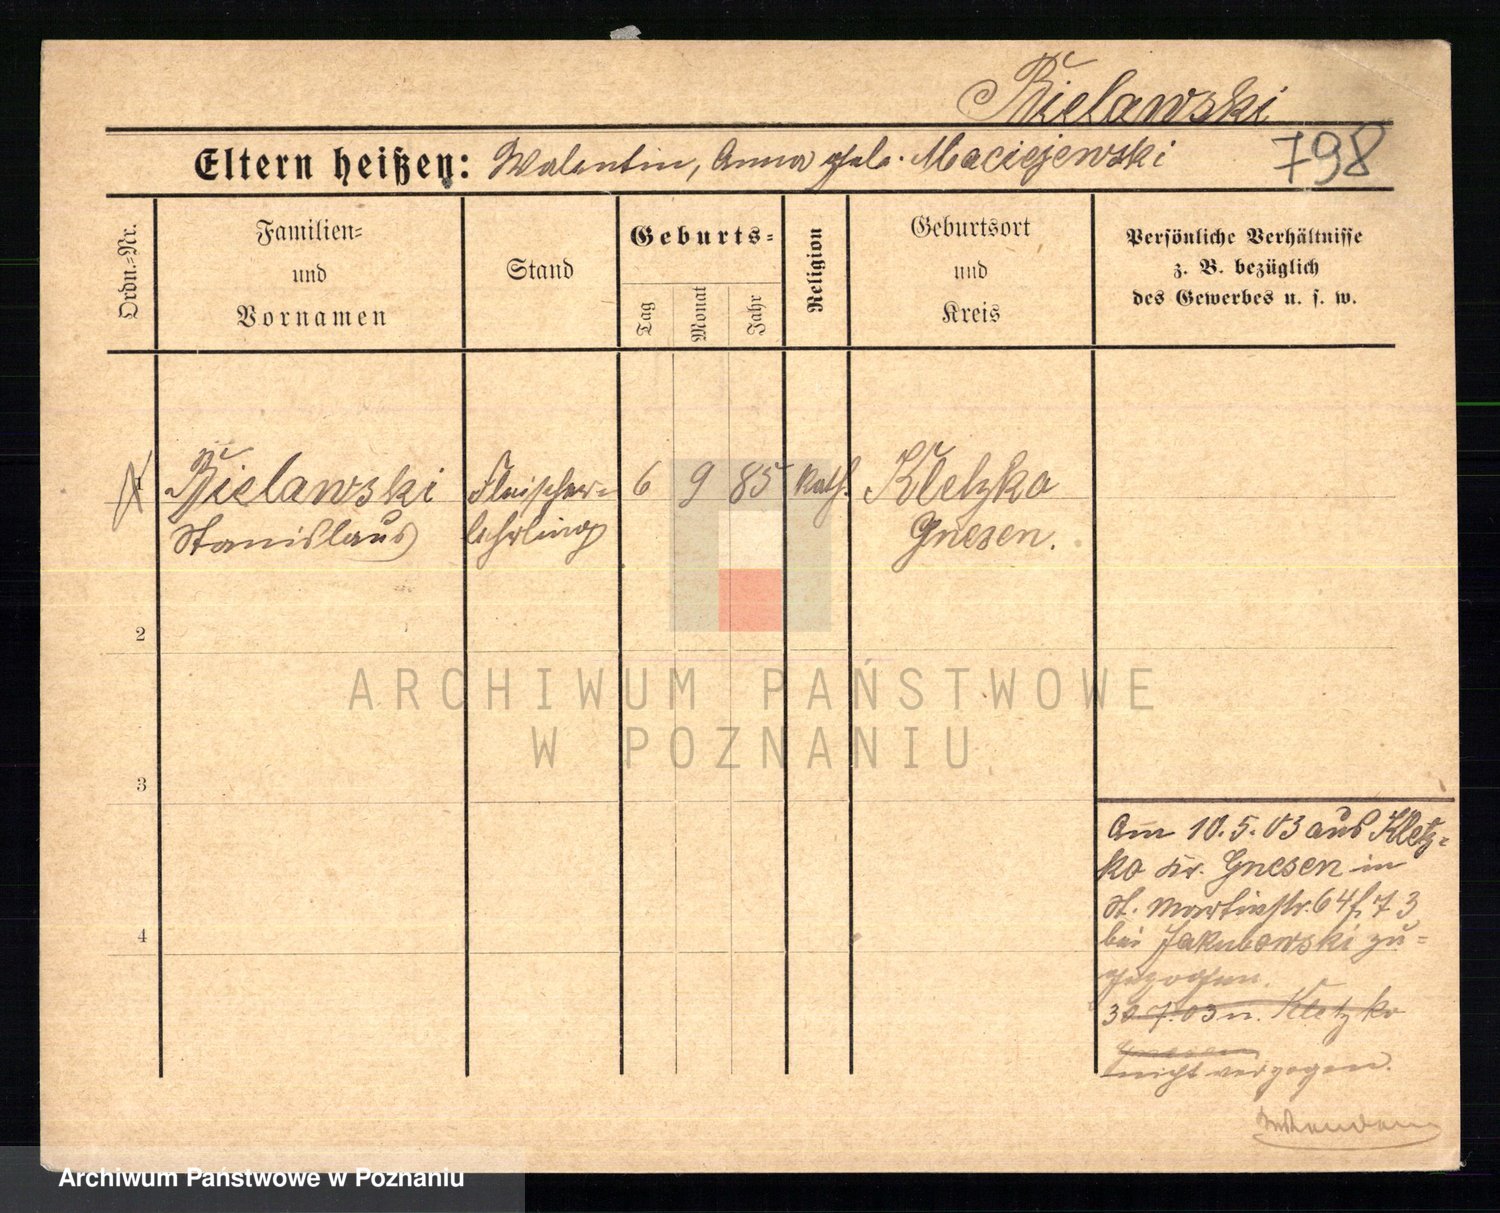 Bielawski
Eltern heißen: Walentin, Anna geb. Maciejewski
798
Ordn.-Nr.
Familien-
und
Vornamen
Stand
Geburts-
Tag
Monat
Jahr
Religion
Geburtsort
und
Kreis
Persönliche Verhältnisse
z. B. bezüglich
des Gewerbes u. s. w.
1 Bielawski Fleischer- 6 9 85 kath. Kletzko
Stanislaus lehrling Gnesen.
2
ARCHIWUM PAŃSTWOWE
W POZNANIU
3
Am 10.5.03 aus Kletz-
ko Kr. Gnesen in
St. Martinstr. 64
bei Jakubowski zu-
gezogen.
4
30.7.03 n. Kletzko
Gnesen
nicht verzogen.
Archiwum Państwowe w Poznaniu